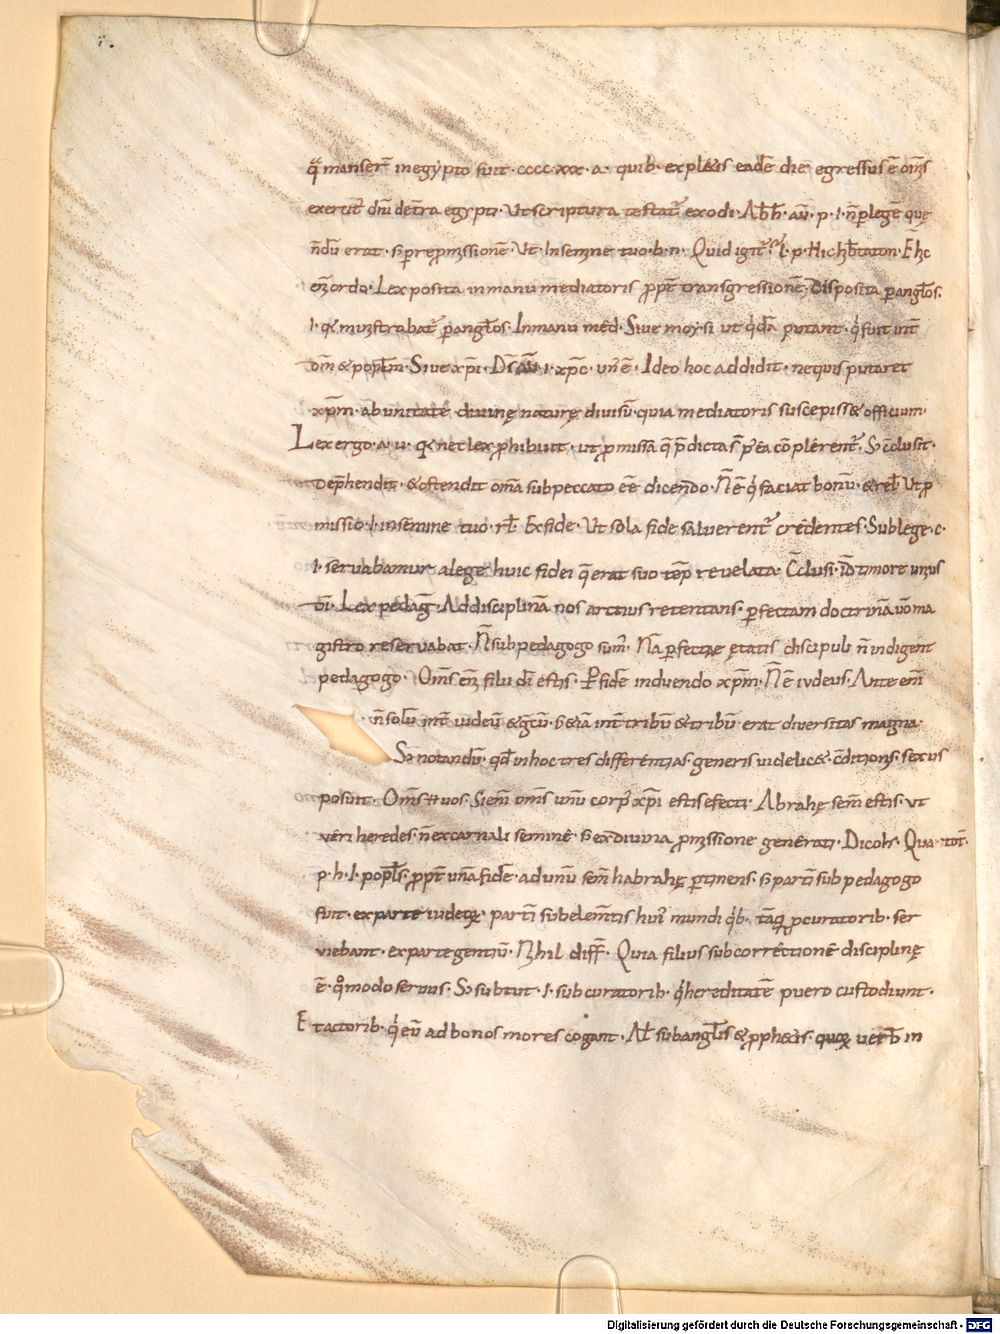 manser̄ in egypto fuit · cccc · xxx · a · quib · expletis eadē die egressus ē om̄s
exercit᷒ dn̄i de tr̄a egypti · Ut scriptura testat᷒ exodi · Abh̄ · au᷒ · p · i · n̄ p legē quę
n̄dū erat · s; p repromissionē · Ut · In semine tuo · b · n · Quid igit᷒
eni ordo · Lex posita in manu mediatoris ꝓpt̄ transgressionē · Disposita p angl̄os ·
p angl̄os · In manu med̄ · Sive moysi ut qda putant · q fuit int̄
om̄ & popl̄m · Sive xp̄i · Ds̄ au᷒ · i · xp̄c · un᷒ ē · Ideo hoc addidit · ne quis putaret
xp̄m · ab unitate divinę naturę divisū quia mediatoris suscepisset officium ·
Lex ergo · a · u · nec lex ꝓhibuit · ut ꝓmissa q̄ p̄dicta s̄ p ea cōplērent᷒ · S; c̄clusit ·
Dep̄hendit · & ostendit om̄a sub peccato ēē dicendo · N̄ ē q faciat bonū · & rel̄ Ut ꝓ
missio · i · in semine tuo · rl̄ · Ex fide · Ut sola fide salverent᷒ credentes · Sub lege · c ·
i · servabamur a lege huic fidei q̄ erat suo tēp revelata · C̄clusi · timore unius
dī · Lex pedag̅ · Ad disciplinā nos artius retentans · p fectam doctrinā v̄o ma
gistro reservabat · N̄ sub pedagogo sum᷒ · Nā p fectae ętatis discipuli n̄ indigent
pedagogo · Om̄s eni filii dī estis · P fidē induendo xp̄m · N̄ ē iudeus · Ante eni
n̄ solū int̄ iudeū & g̅cū · s; & iā int̄ tribū & tribū · erat diversitas magna ·
S; notandū · qd̄ in hoc tres differentias · generis videlic& · c̄ditionis · sexus
posuit · Om̄s vos · Sicut om̄s unū corp᷒ xp̄i estis effecti · Abrahę sem̄ estis · ut
veri heredes · n̄ ex carnali semine · s; ex divina ꝓmissione generati · Dico h · Quā tot̄ ·
p · h · i · popl̄s · ꝓpt̄ unā fidē · ad unū sem̄ habrahę p tinens · s; partī sub pedagogo
fuit · ex parte iudeoꝝ · partī sub elem̄tis hui᷒ mundi qb · tāq̄ ꝓcuratorib · ser
viebant · ex parte gentiū · Nihil diff̄ · Quia filius sub correctionē disciplinę
ē · qo modo servus · S; sub tut · i · sub curatorib · q hereditatē puero custodiunt ·
Et actorib · q eū ad bonos mores cogant · Al̄ sub angl̄is & ꝓph&is · quoꝝ verb in